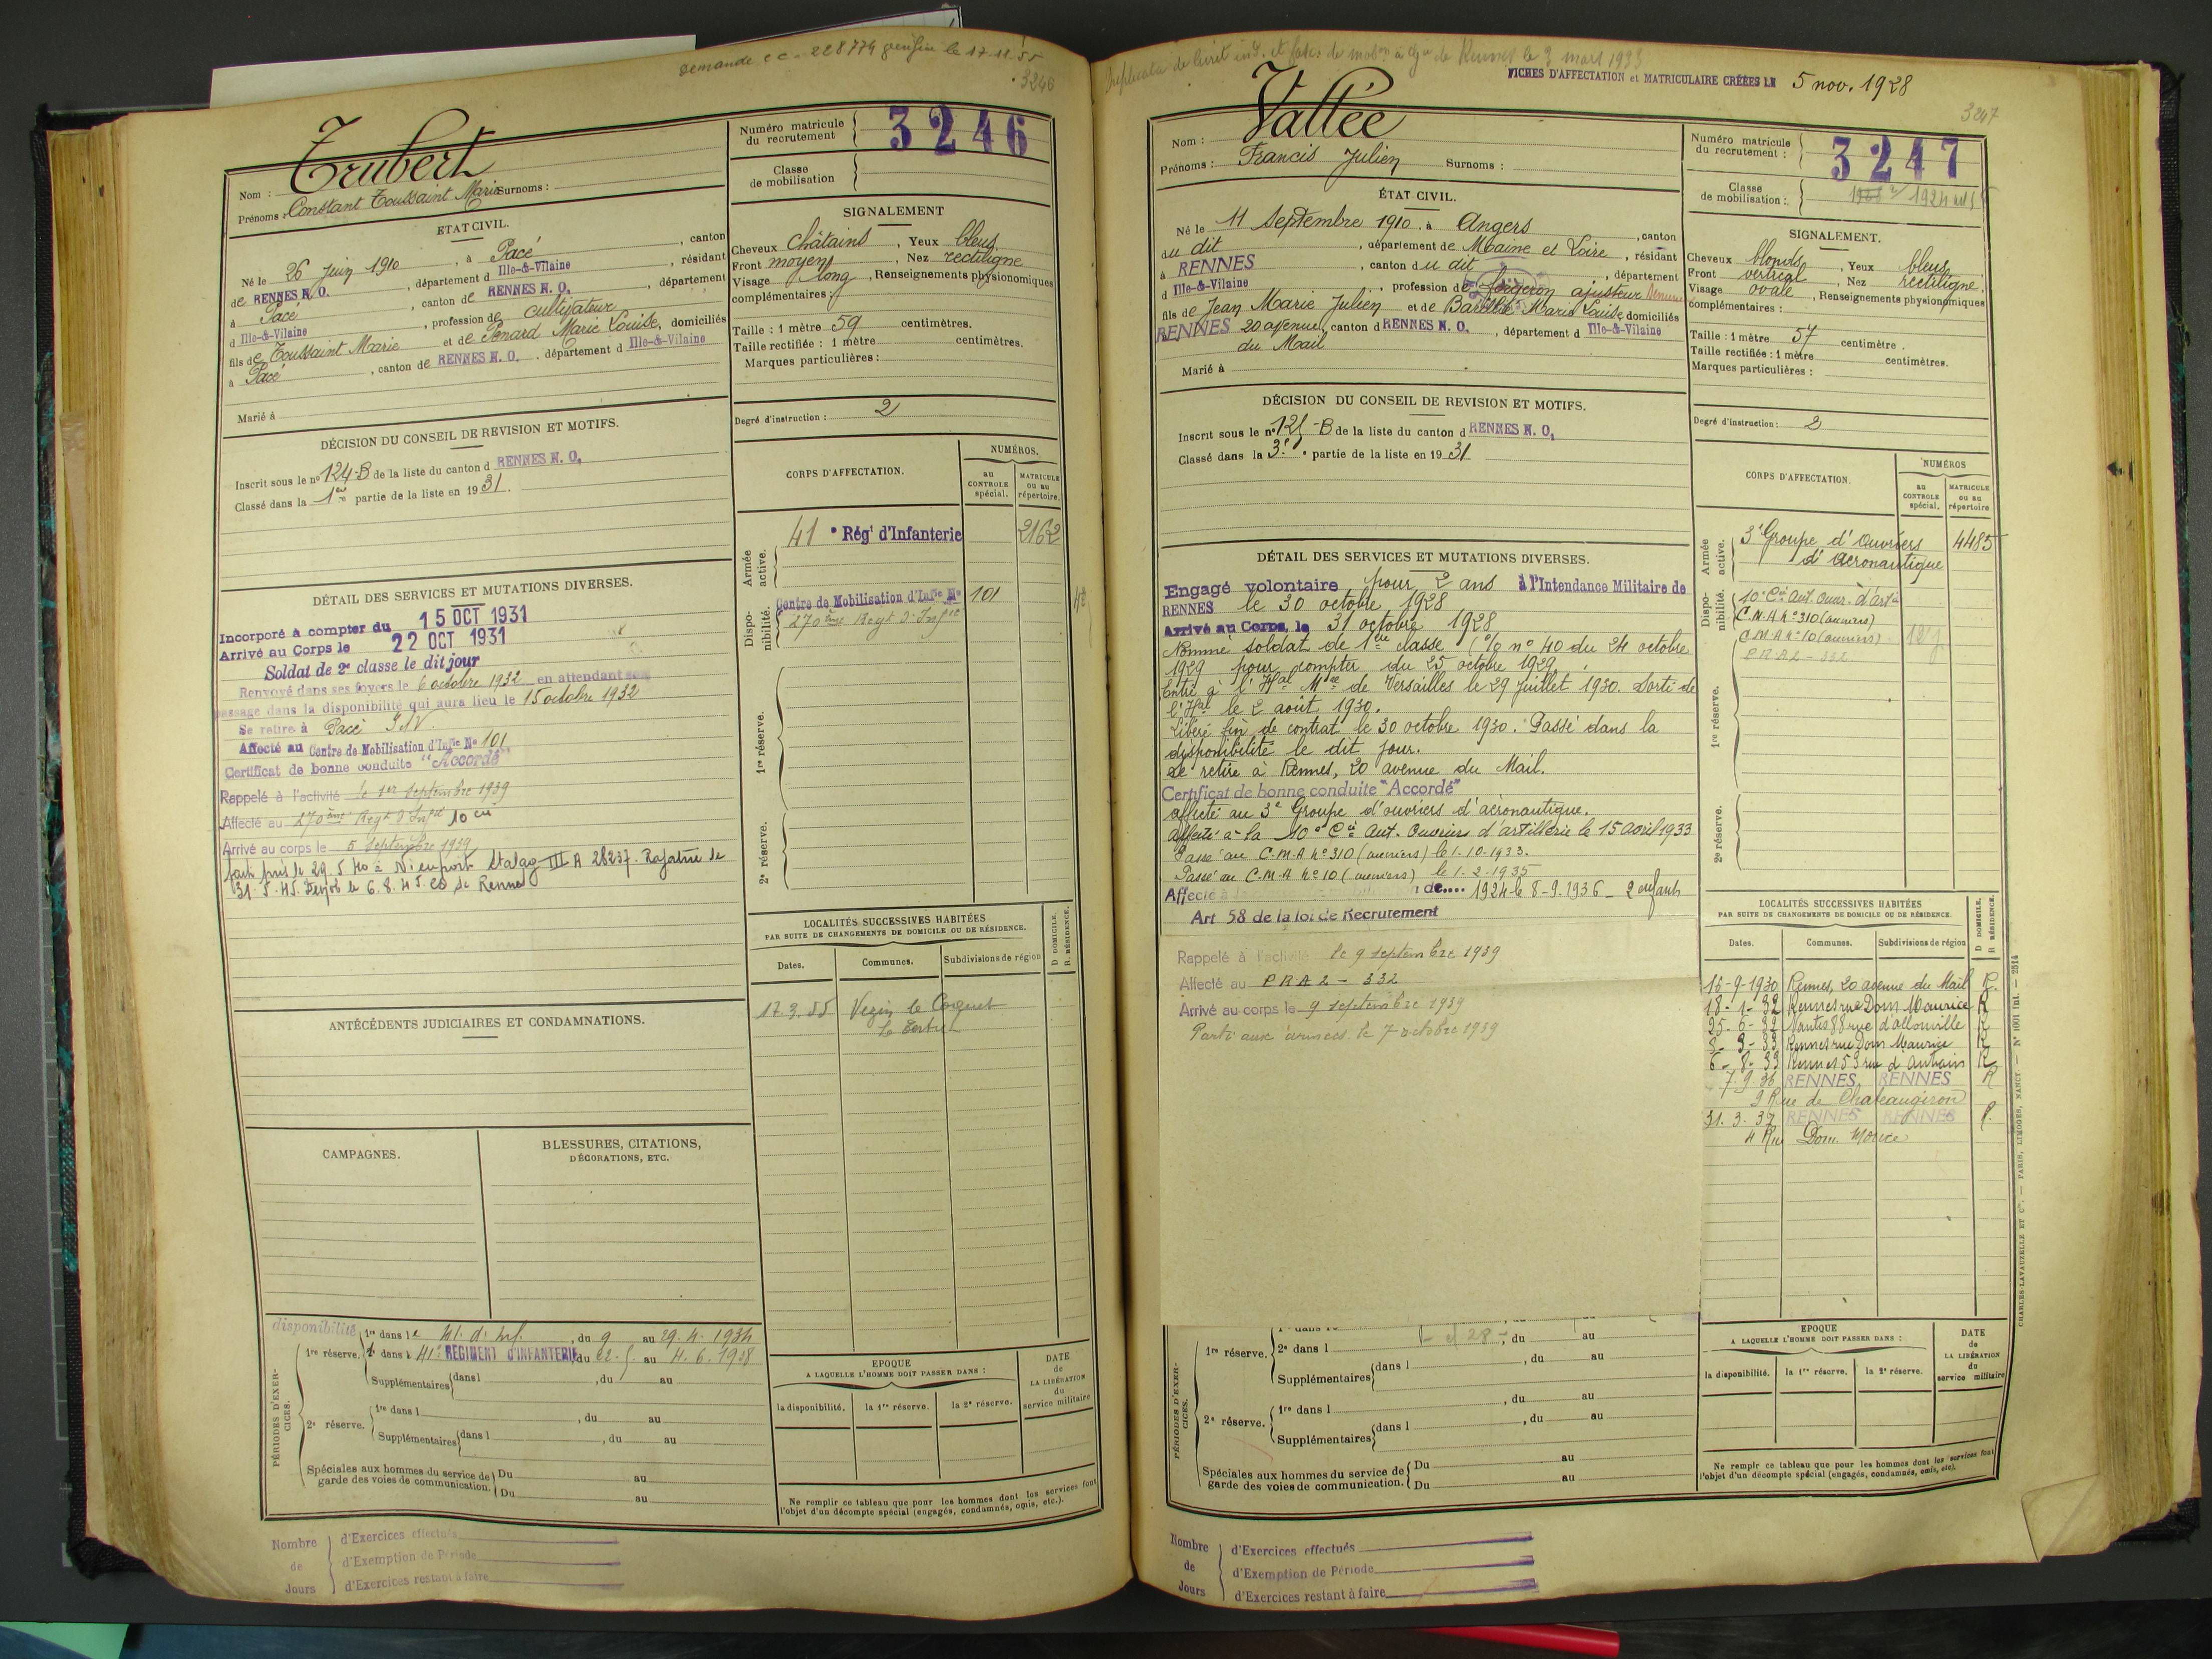 demande cc - 228774 le 17-11-55
3246
Trubert
Nom :
Prénoms : Constant Toussaint Marie Surnoms :
Numéro matricule du recrutement 3246
Classe de mobilisation
ETAT CIVIL.
Né le 26 Juin 1910, à Pacé, canton
de RENNES N. O., département d Ille-&-Vilaine, résidant
à Pacé, canton de RENNES N. O., département
d Ille-&-Vilaine, profession de cultivateur
fils de Toussaint Marie et de Penard Marie Louise, domiciliés
à Pacé, canton de RENNES N. O., département d Ille-&-Vilaine
Marié à
SIGNALEMENT
Cheveux châtains, Yeux bleus
Front moyen, Nez rectiligne
Visage long, Renseignements physionomiques
complémentaires :
Taille : 1 mètre 59 centimètres.
Taille rectifiée : 1 mètre centimètres.
Marques particulières :
DÉCISION DU CONSEIL DE REVISION ET MOTIFS.
Inscrit sous le n° 124-B de la liste du canton d RENNES N. O.
Classé dans la 1ère partie de la liste en 1931.
Degré d'instruction : 2
CORPS D'AFFECTATION.
NUMÉROS.
au CONTROLE spécial.
MATRICULE ou au répertoire.
Armée active.
41e Rég' d'Infanterie 2162
Disponibilité.
Centre de Mobilisation d'Infie N° 101
270ème Regt d'Infie
1re réserve.
2e réserve.
DÉTAIL DES SERVICES ET MUTATIONS DIVERSES.
Incorporé à compter du 15 OCT 1931
Arrivé au Corps le 22 OCT 1931
Soldat de 2e classe le dit jour
Renvoyé dans ses foyers le 6 octobre 1932 en attendant son
passage dans la disponibilité qui aura lieu le 15 octobre 1932
Se retire à Pacé I&V
Affecté au Centre de Mobilisation d'Infie N° 101
Certificat de bonne conduite "Accordé"
Rappelé à l'activité le 1er septembre 1939
Affecté au 270ème Regt d'Infie 10 cie
Arrivé au corps le 5 Septembre 1939
fait pris le 29.5.40 à Nieuport Stalag III A 28237. Rapatrié le
31.5.45. Demob le 6.8.45 CD de Rennes
LOCALITÉS SUCCESSIVES HABITÉES
PAR SUITE DE CHANGEMENTS DE DOMICILE OU DE RÉSIDENCE.
Dates.
Communes.
Subdivisions de région
D DOMICILE.
R RÉSIDENCE.
17.3.55 Vezin le Coquet
ANTÉCÉDENTS JUDICIAIRES ET CONDAMNATIONS.
CAMPAGNES.
BLESSURES, CITATIONS, DÉCORATIONS, ETC.
PÉRIODES D'EXERCICES.
disponibilité
1re réserve. 1re dans le 41. d. inf., du 9 au 29.4.1934
2e dans l 41e REGIMENT D'INFANTERIE du 22-5 au 4.6.1938
Supplémentaires dans l , du au
2e réserve. 1re dans l , du au
Supplémentaires dans l , du au
Spéciales aux hommes du service de garde des voies de communication. Du au
Du au
EPOQUE
A LAQUELLE L'HOMME DOIT PASSER DANS :
la disponibilité.
la 1re réserve.
la 2e réserve.
DATE de LA LIBÉRATION du service militaire
Ne remplir ce tableau que pour les hommes dont les services font
l'objet d'un décompte spécial (engagés, condamnés, omis, etc.).
Nombre de Jours
d'Exercices effectués
d'Exemption de Période
d'Exercices restant à faire
Duplicata de livret ind. et fasc. de mobon à Gie de Rennes le 3 mars 1933
FICHES D'AFFECTATION et MATRICULAIRE CRÉÉES LE 5 nov. 1928
3247
Vallée
Nom :
Prénoms : Francis Julien Surnoms :
Numéro matricule du recrutement : 3247
Classe de mobilisation : 1924
ÉTAT CIVIL.
Né le 11 Septembre 1910, à Angers, canton
du dit, département de Maine et Loire, résidant
à RENNES, canton du dit, département
d Ille-&-Vilaine, profession de forgeron ajusteur
fils de Jean Marie Julien et de Marie Louise domiciliés
RENNES 20 avenue, canton d RENNES N. O., département d Ille-&-Vilaine
du Mail
Marié à
SIGNALEMENT.
Cheveux blonds, Yeux bleus
Front vertical, Nez rectiligne.
Visage ovale, Renseignements physionomiques
complémentaires :
Taille : 1 mètre 57 centimètre.
Taille rectifiée : 1 mètre centimètres.
Marques particulières :
DÉCISION DU CONSEIL DE REVISION ET MOTIFS.
Inscrit sous le n° 121-B de la liste du canton d RENNES N. O.
Classé dans la 3e partie de la liste en 1931
Degré d'instruction : 2
CORPS D'AFFECTATION.
NUMÉROS
au CONTROLE spécial.
MATRICULE ou au répertoire
Armée active.
3e Groupe d'Ouvriers d'aéronautique 4485
Disponibilité.
10e Cie Aut. Ouvr. d'artie
C.M.A n° 310 (ouvriers)
C.M.A n° 10 (ouvriers)
P R A L - 332
1re réserve.
2e réserve.
DÉTAIL DES SERVICES ET MUTATIONS DIVERSES.
Engagé volontaire pour 2 ans à l'Intendance Militaire de
RENNES le 30 octobre 1928
Arrivé au Corps, le 31 octobre 1928
Nommé soldat de 1ère classe O/G n° 40 du 24 octobre
1929 pour compter du 25 octobre 1929.
Entré à l'Hal Mre de Versailles le 29 Juillet 1930. Sorti de
l'Hal le 2 août 1930.
Libéré fin de contrat le 30 octobre 1930. Passé dans la
disponibilité le dit jour.
Se retire à Rennes, 20 avenue du Mail.
Certificat de bonne conduite "Accordé"
affecté au 3e Groupe d'ouvriers d'aéronautique.
Affecté à la 10e Cie Aut. Ouvriers d'artillerie le 15 avril 1933
Passé au C.M.A n° 310 (ouvriers) le 1-10-1933.
Passé au C.M.A n° 10 (ouvriers) le 1-2-1935
Affecté à la de.... 1924 le 8-9-1936 - 2 enfants
Art 58 de la loi de Recrutement
Rappelé à l'activité le 9 septembre 1939
Affecté au P R A L - 332
Arrivé au corps le 9 septembre 1939
Parti aux armées le 7 octobre 1939
LOCALITÉS SUCCESSIVES HABITÉES
PAR SUITE DE CHANGEMENTS DE DOMICILE OU DE RÉSIDENCE.
Dates.
Communes.
Subdivisions de région
D DOMICILE.
R RÉSIDENCE.
15-9-1930 Rennes, 20 avenue du Mail R.
18-1-32 Rennes rue Dom Maurice R
25-6-32 Nantes 88 rue d'Allonville R
8-3-33 Rennes rue Dom Maurice R
6-8-33 Rennes 53 rue d'Antrain R
7.9 36 RENNES RENNES R
9 Rue de Chateaugiron
31.3.37 RENNES RENNES R.
4 Rue Dom Morice
PÉRIODES D'EXERCICES.
1re réserve. 2e dans l , du au
Supplémentaires dans l , du au
2e réserve. 1re dans l , du au
Supplémentaires dans l , du au
Spéciales aux hommes du service de garde des voies de communication. Du au
Du au
EPOQUE
A LAQUELLE L'HOMME DOIT PASSER DANS :
la disponibilité.
la 1re réserve.
la 2e réserve.
DATE de LA LIBÉRATION du service militaire
Ne remplir ce tableau que pour les hommes dont les services font
l'objet d'un décompte spécial (engagés, condamnés, omis, etc).
CHARLES-LAVAUZELLE ET Cie. — PARIS, LIMOGES, NANCY — N° 1001 bis. — 2514
Nombre de Jours
d'Exercices effectués
d'Exemption de Période
d'Exercices restant à faire